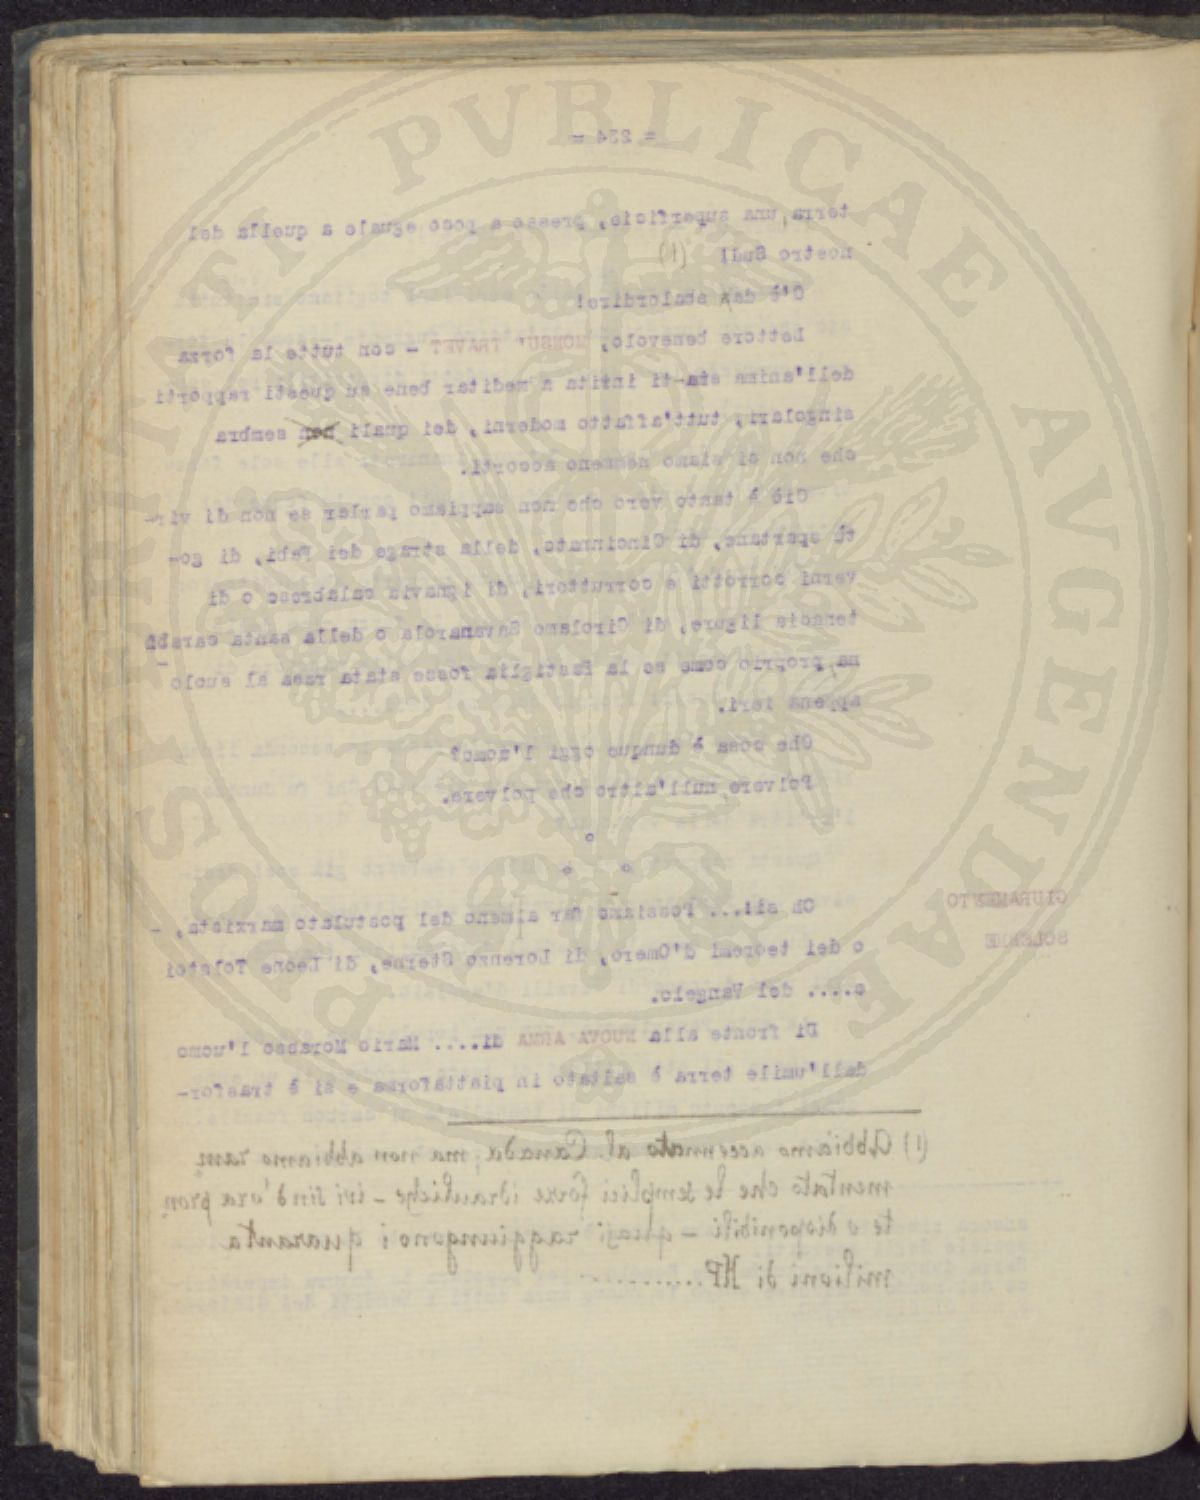 = 234 =
terra, una superficie, presso a poco eguale a quella del
nostro Sud! (1)
C'è da sbalordire!
Lettore benevolo, MONSU' TRAVET - con tutte la forza
dell'anima sta-ti invita a meditar bene su questi rapporti
singolari, tutt'affatto moderni, dei quali non sembra
che non ci siamo nemmeno accorti.
Ciò è tanto vero che non sappiamo parlar se non di vir-
tù spartane, di Cincinnato, della strage dei Fabi, di go-
verni corrotti e corruttori, di ignavia calabrese o di
tenacia ligure, di Girolamo Savanarola o della santa carabi
na, proprio come se la Bastiglia fosse stata rasa al suolo
appena ieri.
Che cosa è dunque oggi l'uomo?
Polvere, null'altro che polvere.
°
° °
GIURAMENTO
SOLENNE
Oh sì!... Possiamo far almeno del postulato marxista, -
o dei teoremi d'Omero, di Lorenzo Sterne, di Leone Tolstoi
e.... del Vangelo.
Di fronte alla NUOVA ARMA di.... Mario Morasso l'uomo
dall'umile terra è saltato in piattaforma e si è trasfor-
(1) Abbiamo accennato al Canadà; ma non abbiamo ram
mentato che le semplici forze idrauliche - ivi sind'ora pron
te o disponibili - quasi raggiungono i quaranta
milioni di HP............
PVBLICAE AVGENDAE PROSPERITATI